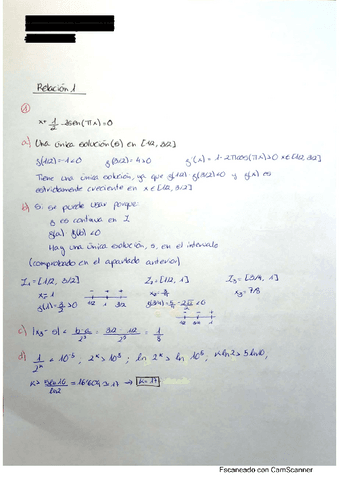 Relación 1
①
x + 1/2 - 2sen(πx) = 0
a) Una única solución (s) en [1/2, 3/2]
g(1/2) = -1 < 0 g(3/2) = 4 > 0 g'(x) = 1 - 2πcos(πx) > 0 x ∈ [1/2, 3/2]
Tiene una única solución, ya que g(1/2) g(3/2) < 0 y g(x) es
estrictamente creciente en x ∈ [1/2, 3/2]
b) Si se puede usar porque:
g es continua en I
g(a) g(b) < 0
Hay una única solución, s, en el intervalo
(comprobado en el apartado anterior)
I₁ = [1/2, 3/2] I₂ = [1/2, 1] I₃ = [3/4, 1]
x₁ = 1 x₂ = 3/4 x₃ = 7/8
g(1) = 3/2 > 0 g(3/4) = 5/4 - 2√2/2 < 0
c) |x₃ - s| < b-a/2³ = 3/2 - 1/2 / 2³ = 1/8
d) 1/2ᵏ < 10⁻⁵; 2ᵏ > 10⁵; ln 2ᵏ > ln 10⁵; k ln 2 > 5 ln 10;
k > 5 ln 10/ln 2 = 16'609 ≈ 17 → k = 17
Escaneado con CamScanner